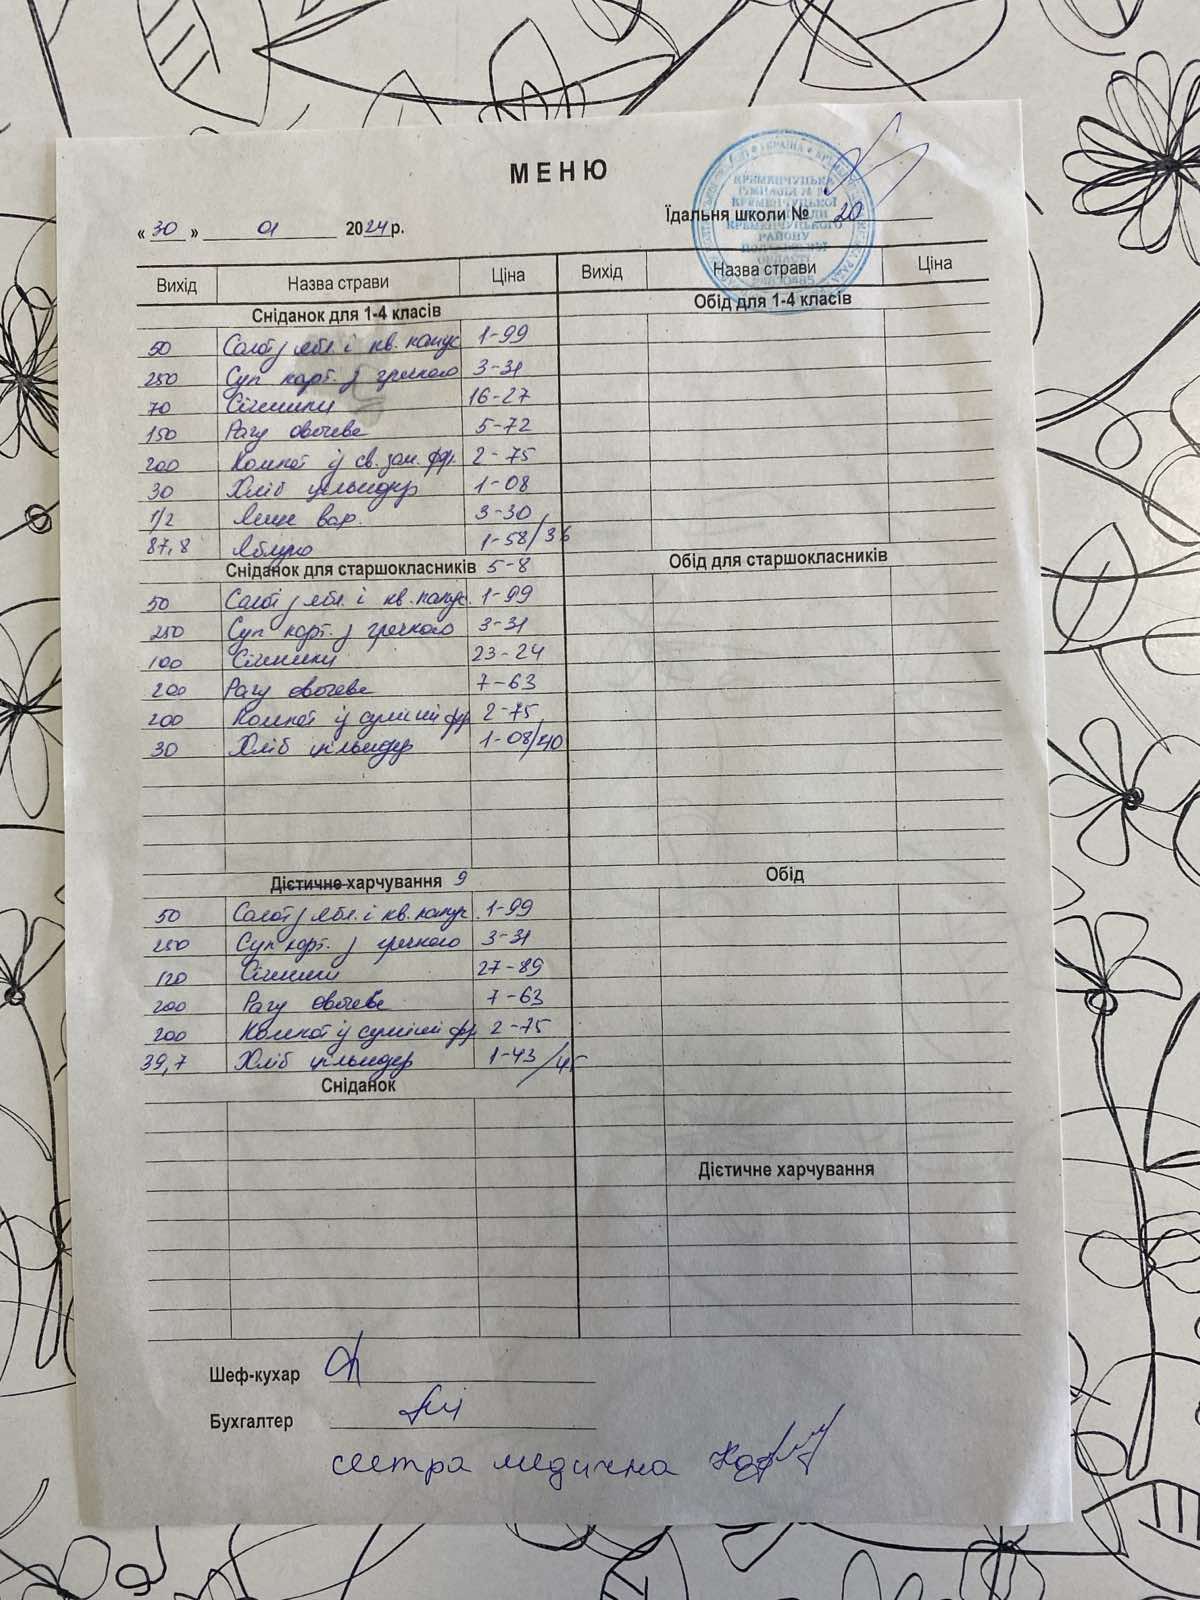 МЕНЮ
« 30 » 01 2024 р.
Їдальня школи № 20
КРЕМЕНЧУЦЬКА
ГІМНАЗІЯ №
КРЕМЕНЧУЦЬКОЇ
КРЕМЕНЧУЦЬКОГО
РАЙОНУ
ОБЛАСТІ
Вихід Назва страви Ціна Вихід Назва страви Ціна
Сніданок для 1-4 класів Обід для 1-4 класів
50 Салат з ябл. і кв. капус 1-99
250 Суп карт. з гречкою 3-31
70 Січеники 16-27
150 Рагу овочеве 5-72
200 Компот із св. зам. фр. 2-75
30 Хліб цільнозер 1-08
1/2 Яйце вар. 3-30
87,8 Яблуко 1-58/36
Сніданок для старшокласників 5-8 Обід для старшокласників
50 Салат з ябл. і кв. капус. 1-99
250 Суп карт. з гречкою 3-31
100 Січеники 23-24
200 Рагу овочеве 7-63
200 Компот із суміші фр 2-75
30 Хліб цільнозер 1-08/40
Дієтичне харчування 9 Обід
50 Салат з ябл. і кв. капус. 1-99
250 Суп карт. з гречкою 3-31
120 Січеники 27-89
200 Рагу овочеве 7-63
200 Компот із суміші фр 2-75
39,7 Хліб цільнозер 1-43/45
Сніданок
Дієтичне харчування
Шеф-кухар
Бухгалтер
сестра медична